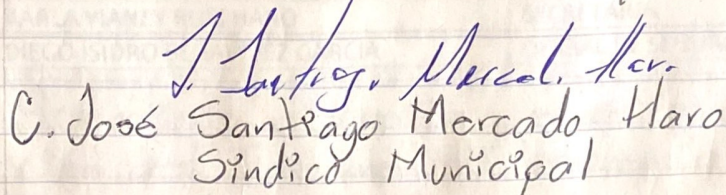 J. Santiag. Mercad. Har.
C. José Santiago Mercado Haro
Sindico Municipal